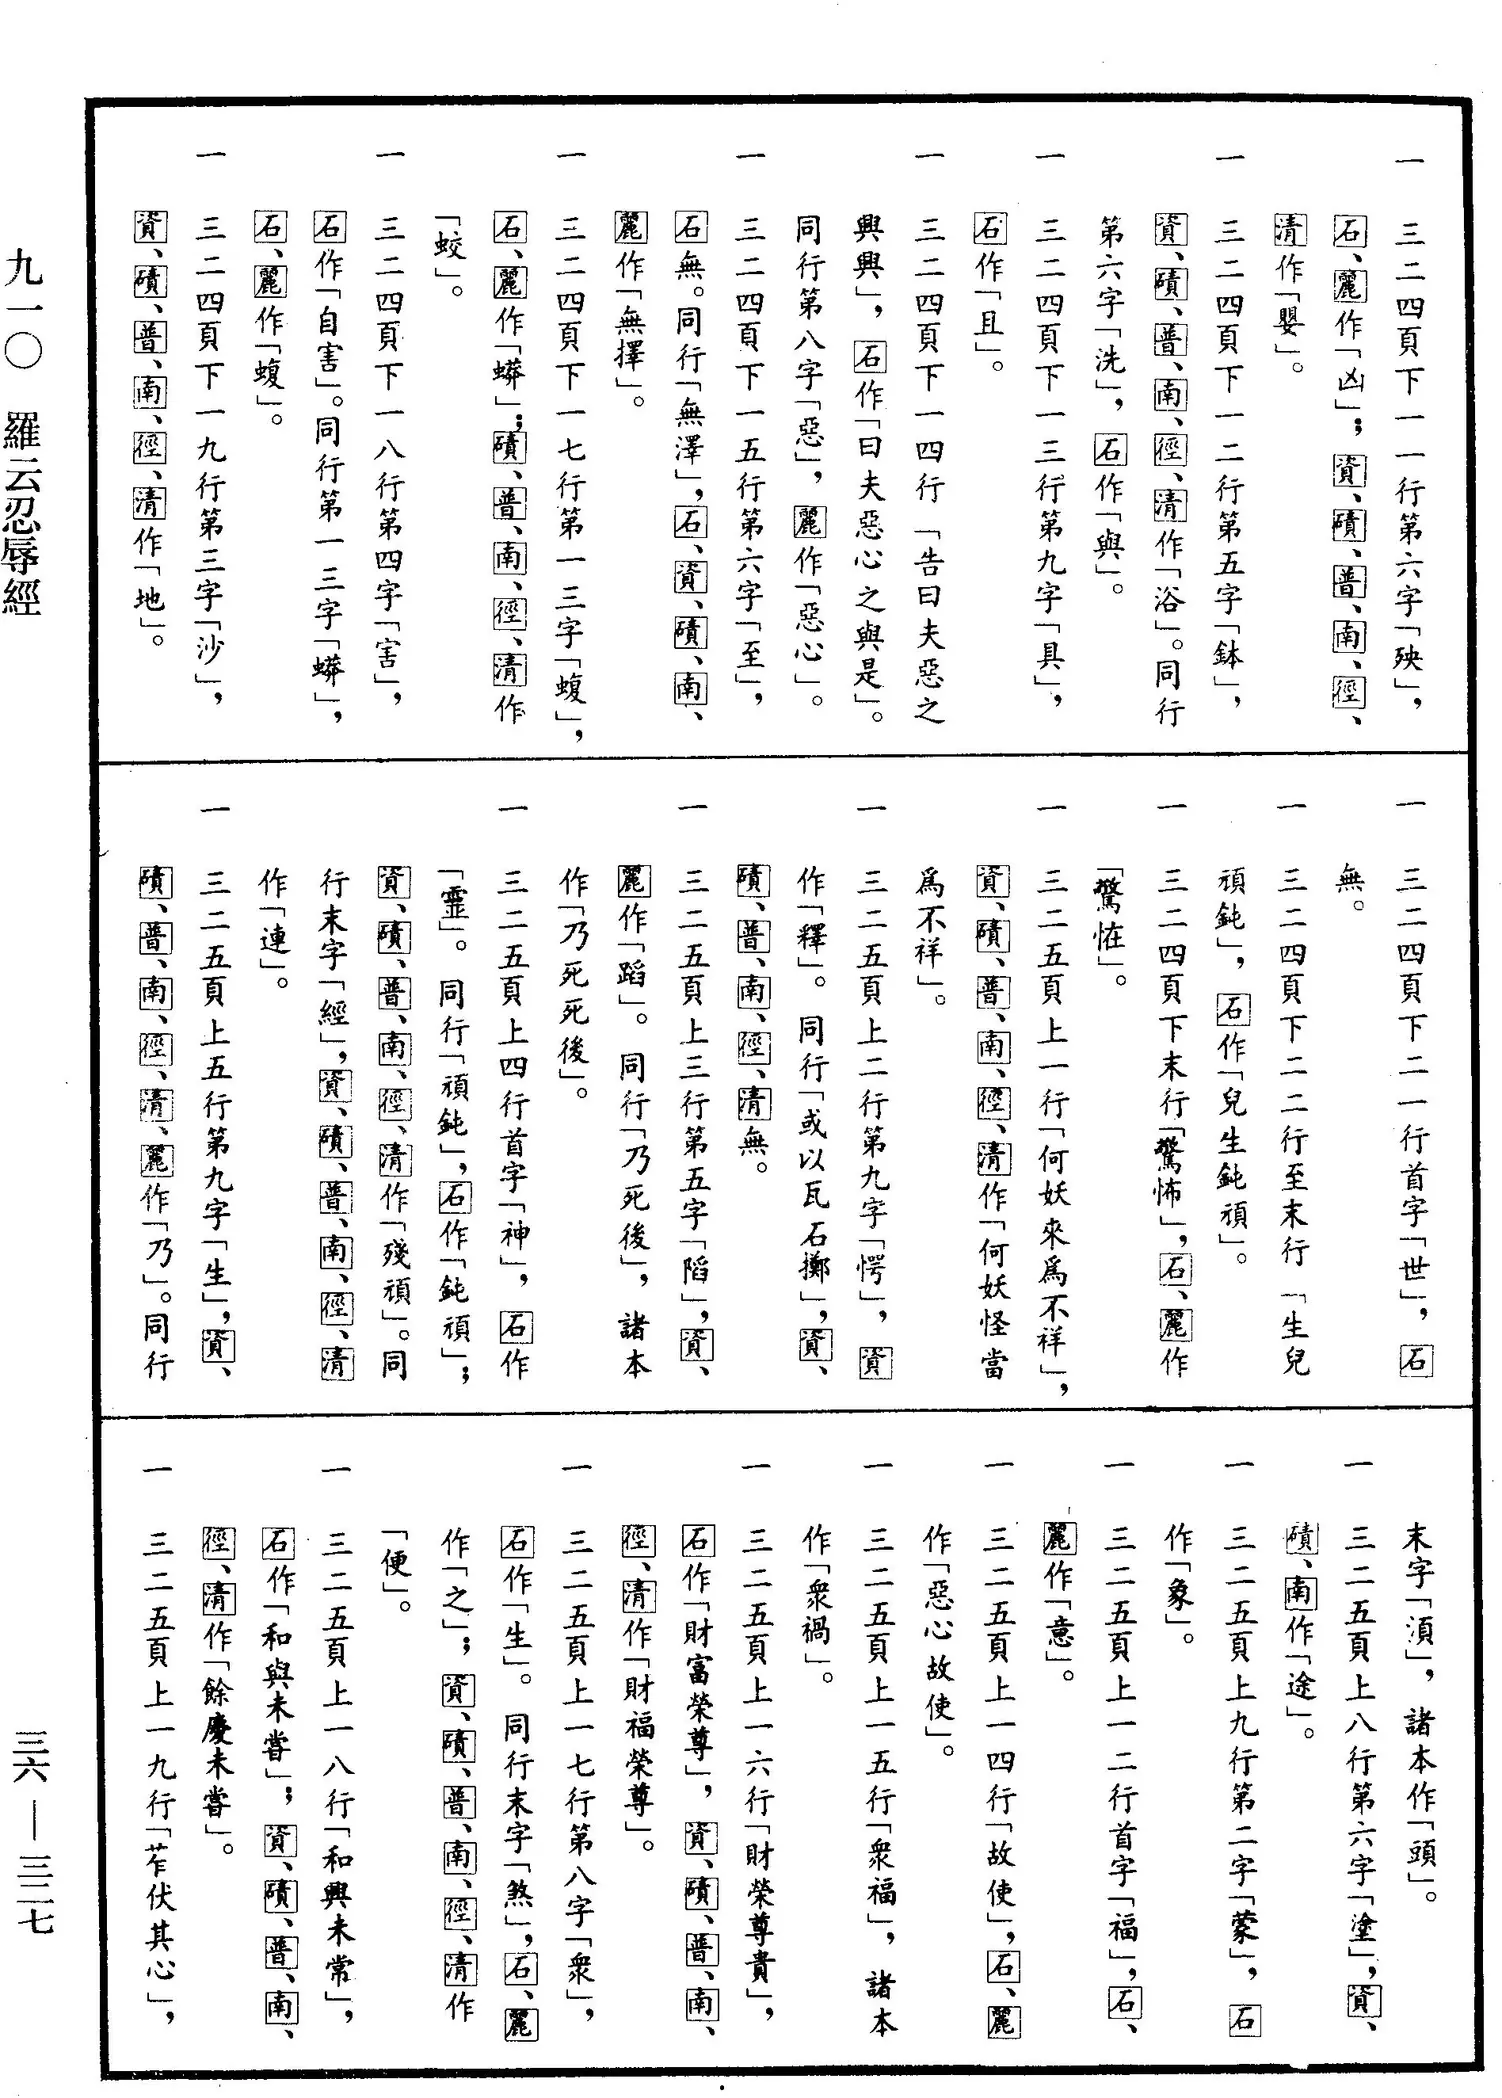 一　三二四頁下一一行第六字「殃」，
石、麗作「凶」；資、磧、普、南、徑、
清作「嬰」。
一　三二四頁下一二行第五字「鉢」，
資、磧、普、南、徑、清作「浴」。同行
第六字「洗」，石作「與」。
一　三二四頁下一三行第九字「具」，
石作「且」。
一　三二四頁下一四行「告曰夫惡之
興興」，石作「曰夫惡心之與是」。
同行第八字「惡」，麗作「惡心」。
一　三二四頁下一五行第六字「至」，
石無。同行「無澤」，石、資、磧、南、
麗作「無擇」。
一　三二四頁下一七行第一三字「蝮」，
石、麗作「蟒」；磧、普、南、徑、清作
「蛟」。
一　三二四頁下一八行第四字「害」，
石作「自害」。同行第一三字「蟒」，
石、麗作「蝮」。
一　三二四頁下一九行第三字「沙」，
資、磧、普、南、徑、清作「地」。
一　三二四頁下二一行首字「世」，石
無。
一　三二四頁下二二行至末行「生兒
頑鈍」，石作「兒生鈍頑」。
一　三二四頁下末行「驚怖」，石、麗作
「驚恠」。
一　三二五頁上一行「何妖來爲不祥」，
資、磧、普、南、徑、清作「何妖怪當
爲不祥」。
一　三二五頁上二行第九字「愕」，資
作「釋」。同行「或以瓦石擲」，資、
磧、普、南、徑、清無。
一　三二五頁上三行第五字「陷」，資、
麗作「蹈」。同行「乃死後」，諸本
作「乃死死後」。
一　三二五頁上四行首字「神」，石作
「靈」。同行「頑鈍」，石作「鈍頑」；
資、磧、普、南、徑、清作「殘頑」。同
行末字「經」，資、磧、普、南、徑、清
作「連」。
一　三二五頁上五行第九字「生」，資、
磧、普、南、徑、清、麗作「乃」。同行
末字「湏」，諸本作「頭」。
一　三二五頁上八行第六字「塗」，資、
磧、南作「途」。
一　三二五頁上九行第二字「蒙」，石
作「象」。
一　三二五頁上一二行首字「福」，石、
麗作「意」。
一　三二五頁上一四行「故使」，石、麗
作「惡心故使」。
一　三二五頁上一五行「衆福」，諸本
作「衆禍」。
一　三二五頁上一六行「財榮尊貴」，
石作「財富榮尊」，資、磧、普、南、
徑、清作「財福榮尊」。
一　三二五頁上一七行第八字「衆」，
石作「生」。同行末字「煞」，石、麗
作「之」；資、磧、普、南、徑、清作
「便」。
一　三二五頁上一八行「和興未常」，
石作「和與未嘗」；資、磧、普、南、
徑、清作「餘慶未嘗」。
一　三二五頁上一九行「莋伏其心」，
九一〇　羅云忍辱經
三六—三二七